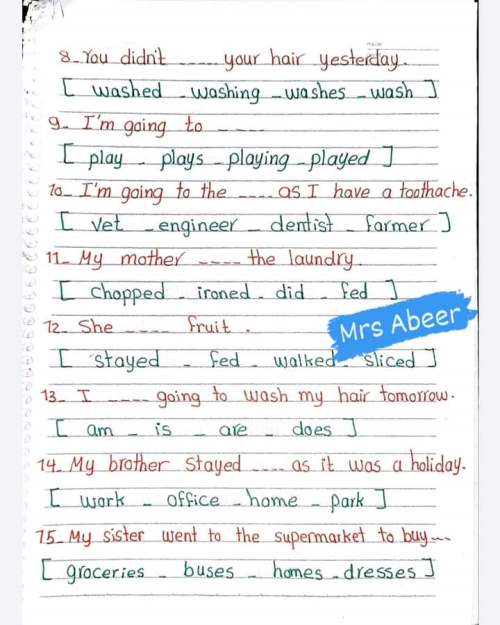 8- You didn't ----- your hair yesterday.
[ washed - washing - washes - wash ]
9- I'm going to - ----
[ play - plays - playing - played ]
10- I'm going to the ---- as I have a toothache.
[ vet - engineer - dentist - farmer ]
11- My mother ---- the laundry.
[ chopped - ironed - did - fed ]
12- She ----- fruit.
Mrs Abeer
[ stayed - fed - walked - sliced ]
13- I ---- going to wash my hair tomorrow.
[ am - is - are - does ]
14- My brother stayed ---- as it was a holiday.
[ work - office - home - park ]
15- My sister went to the supermarket to buy---
[ groceries - buses - homes - dresses ]